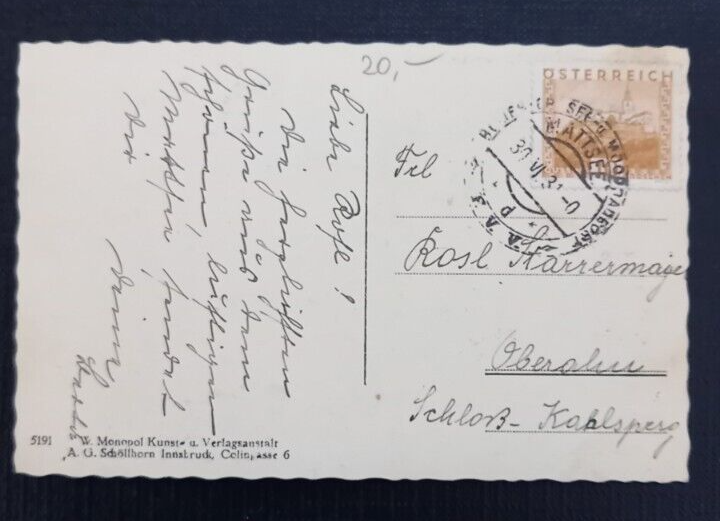 20,-
Liebe Rosl!
Die herzlichsten
Grüße aus dem
schönen, lustigen
Mattsee sendet
Dir
Deine
ÖSTERREICH
MATTSEE
30.VI.31
Frl
Rosl Starzermayer
Oberalm
Schloß-Kahlsperg
5191
W. Monopol Kunst- u. Verlagsanstalt
A. G. Schöllhorn Innsbruck, Colingasse 6